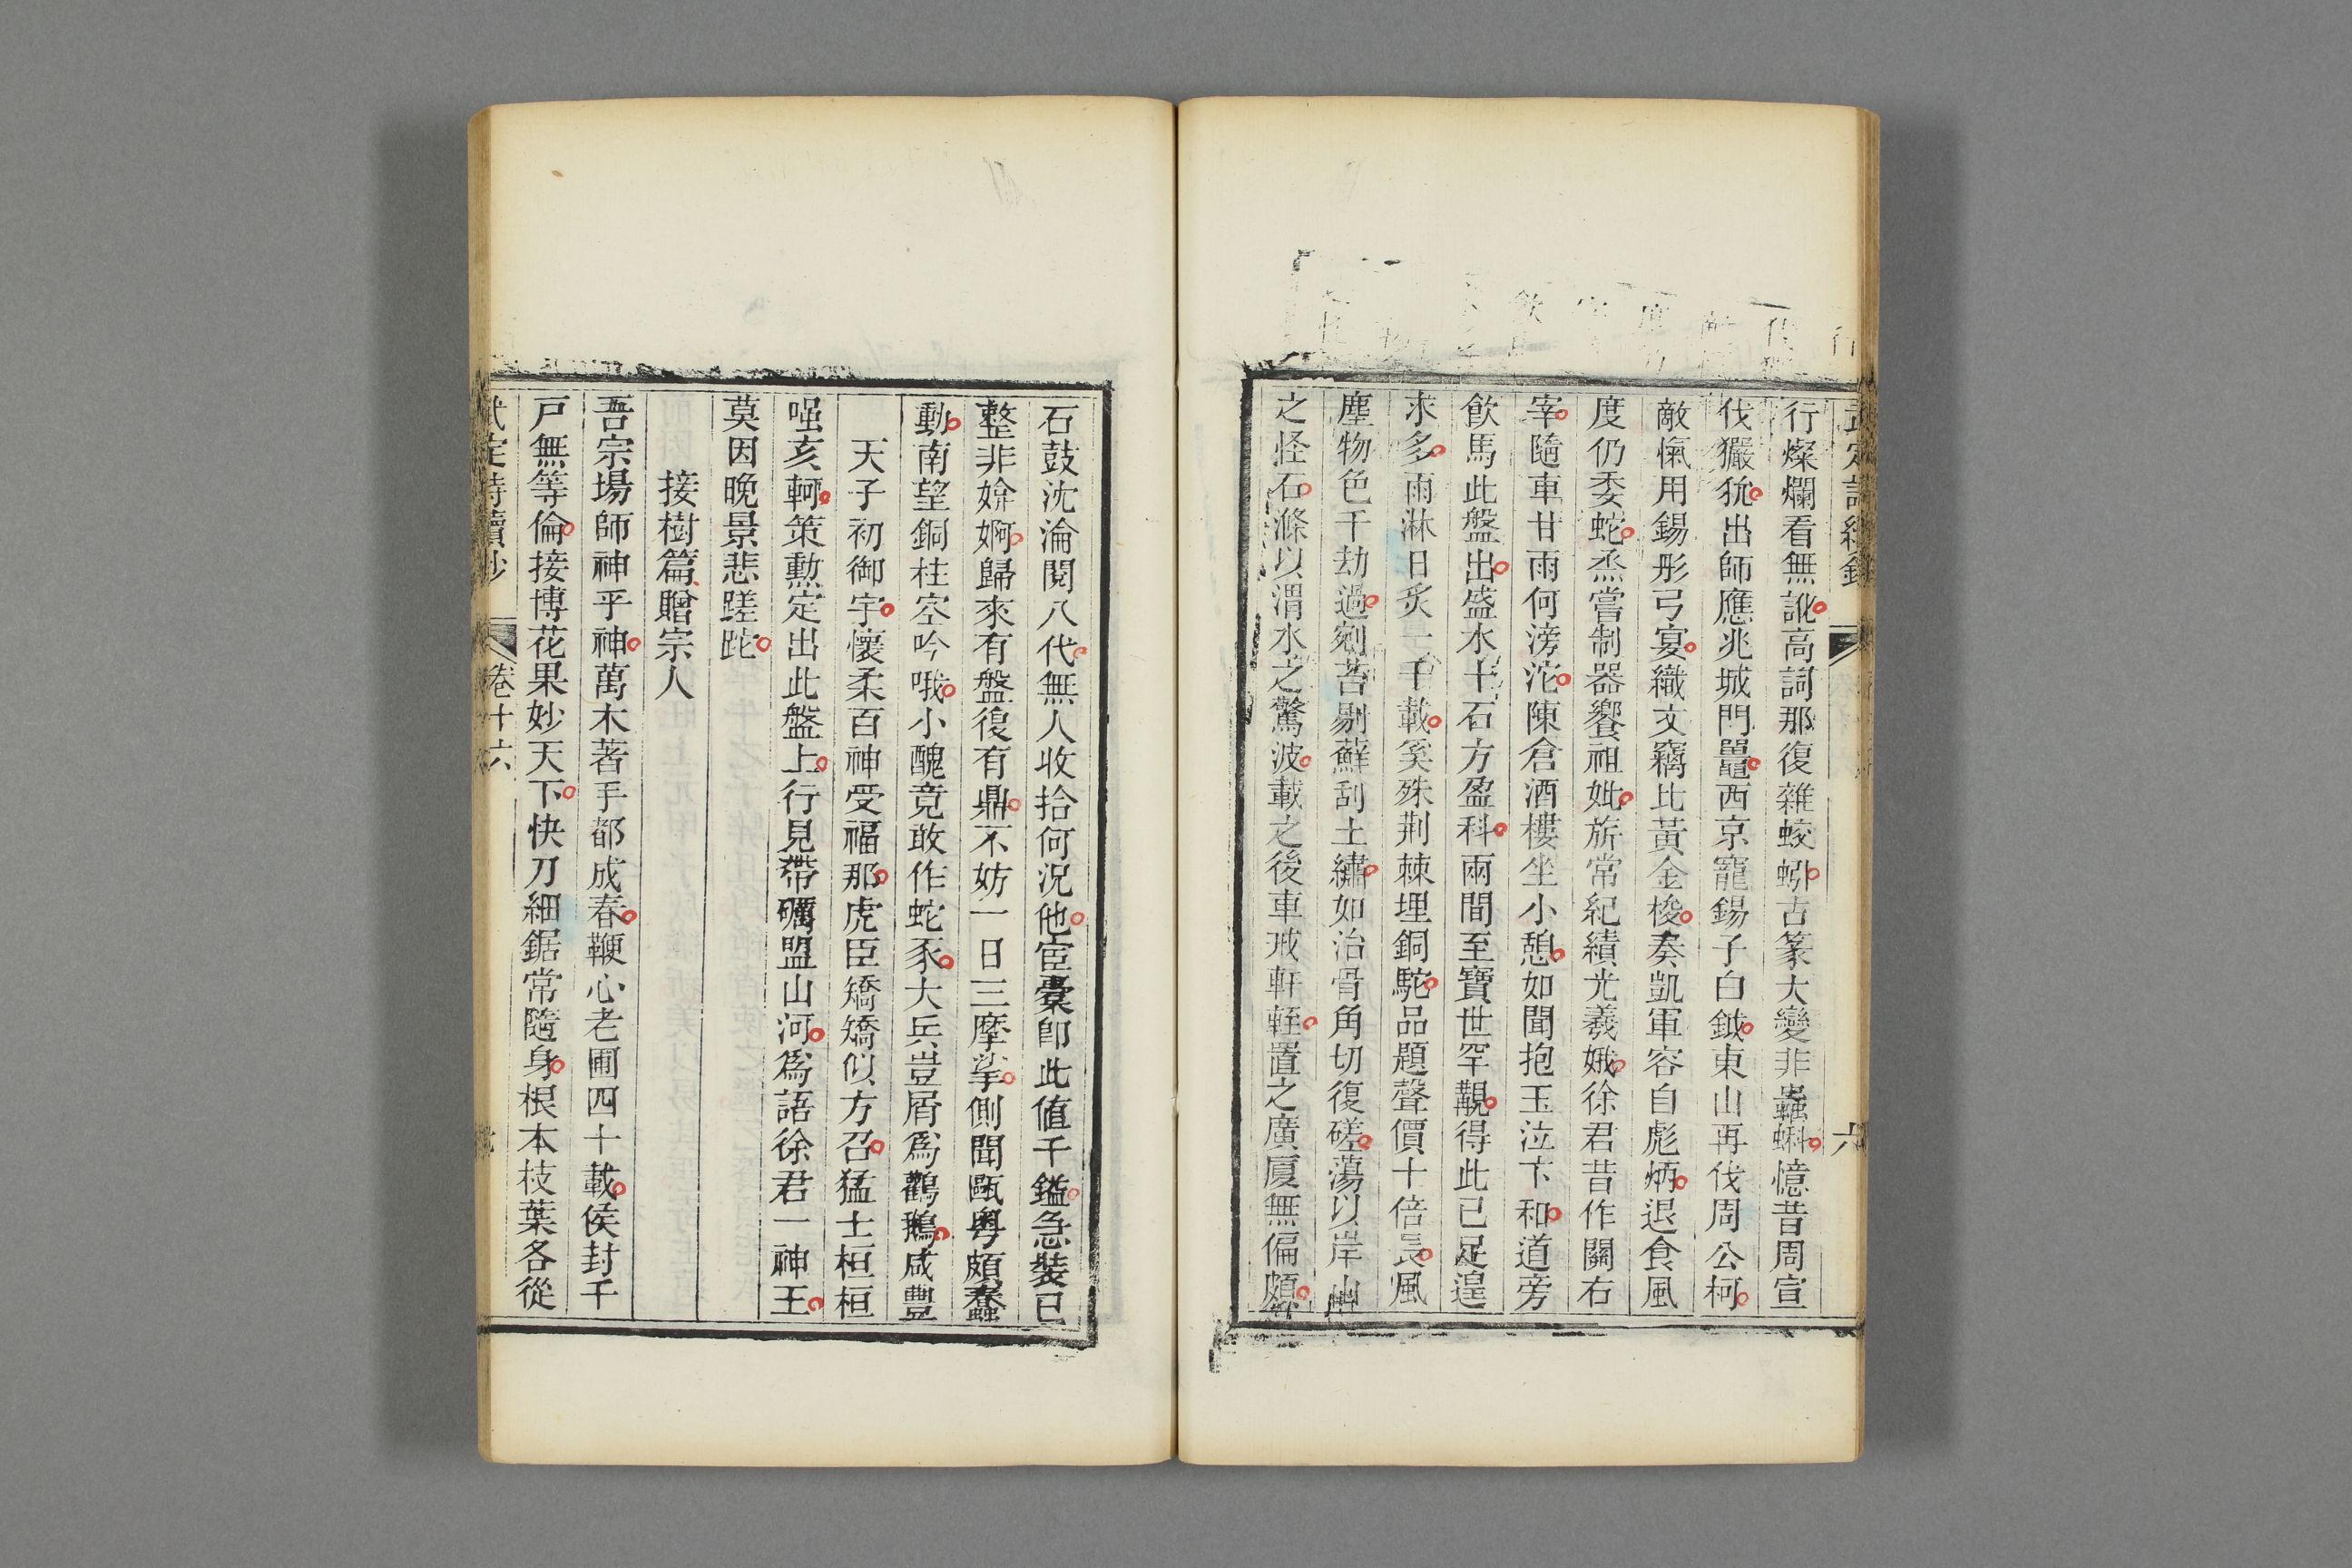 行燦爛看無訛高詞那復雜蛟蚓古篆大變非蟲蝌憶昔周宣
伐玁狁出師應兆城門鼉西京寵錫子白鉞東山再伐周公柯
敵愾用錫彤弓宴織文竊比黃金梭奏凱軍容自彪炳退食風
度仍委蛇烝嘗制器饗祖妣旂常紀績光羲娥徐君昔作關右
宰隨車甘雨何滂沱陳倉酒樓坐小憩如聞抱玉泣卞和道旁
飲馬此盤出盛水十石方盈科兩間至寶世罕覯得此已足遑
求多雨淋日炙二千載奚殊荆棘埋銅駝品題聲價十倍長風
塵物色千劫過剜苔剔蘚刮土繡如治骨角切復磋蕩以岸山
之怪石滌以渭水之驚波載之後車戒軒輊置之廣廈無偏頗
六
石鼓沈淪閱八代無人收拾何況他宦橐卽此値千鎰急裝已
整非媕婀歸來有盤復有鼎不妨一日三摩挲側聞甌粤頗蠢
動南望銅柱空吟哦小醜竟敢作蛇豕大兵豈屑爲鸛鵝咸豐
天子初御宇懷柔百神受福那虎臣矯矯似方召猛士桓桓
强亥軻策勳定出此盤上行見帶礪盟山河爲語徐君一神王
莫因晚景悲蹉跎
接樹篇贈宗人
吾宗場師神乎神萬木著手都成春鞭心老圃四十載侯封千
戸無等倫接博花果妙天下快刀細鋸常隨身根本枝葉各從
武定詩續鈔 卷十六